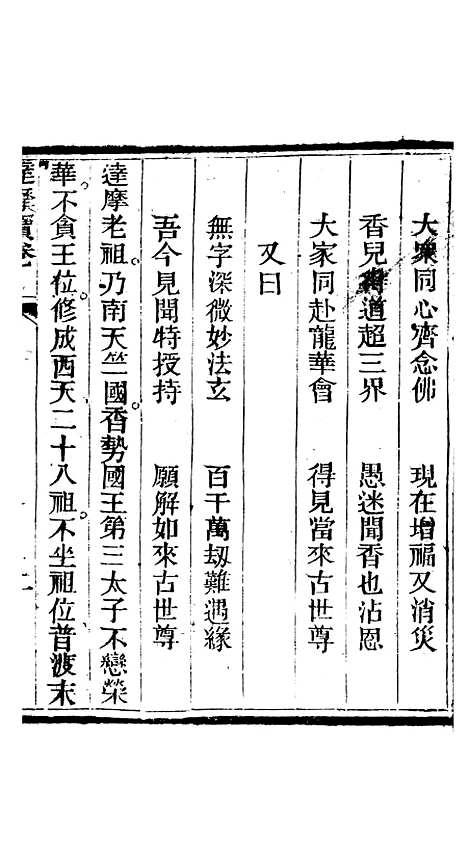 大衆同心齊念佛　現在增福又消災
香兒得道超三界　愚迷聞香也沾恩
大家同赴龍華會　得見當來古世尊
又曰
無字深微妙法玄　百千萬刼難遇緣
吾今見聞特授持　願解如來古世尊
達摩老祖。乃南天竺國香勢國王第三太子不戀榮
華不貪王位。修成西天二十八祖。不坐祖位普渡末
達摩寶卷　二